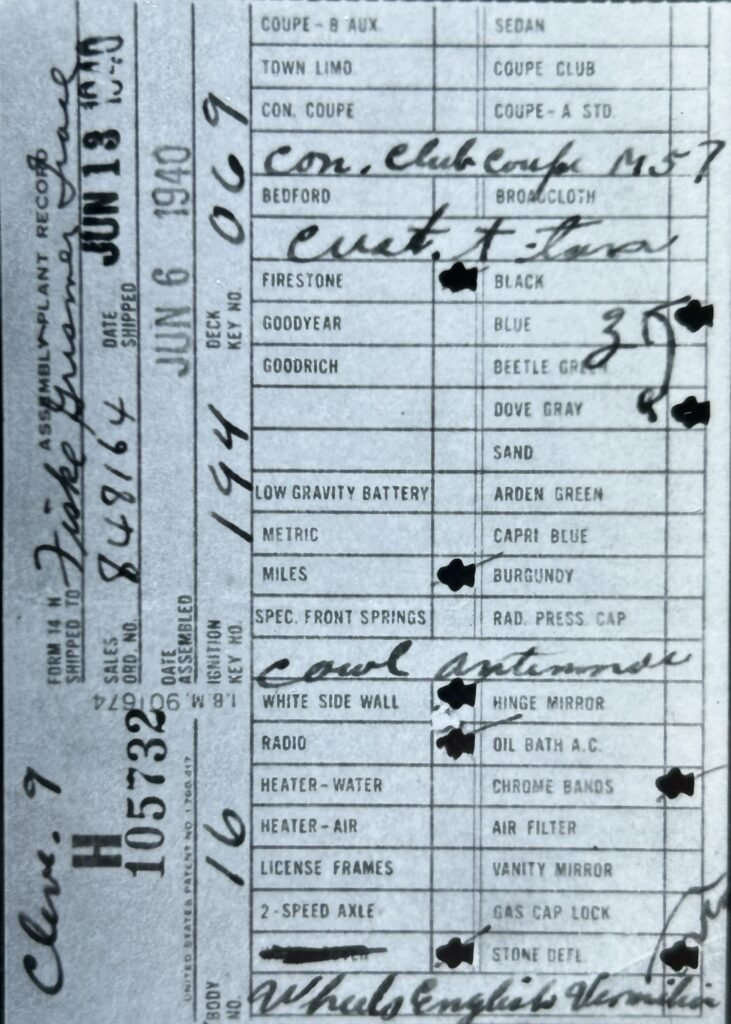 COUPE-B AUX. SEDAN
TOWN LIMO. COUPE CLUB
CON. COUPE COUPE-A STD.
Con. Club Coupe M57
BEDFORD BROADCLOTH
Cust. T-tone
FIRESTONE BLACK
GOODYEAR BLUE 35
GOODRICH BEETLE GREEN
DOVE GRAY
SAND
LOW GRAVITY BATTERY ARDEN GREEN
METRIC CAPRI BLUE
MILES BURGUNDY
SPEC. FRONT SPRINGS RAD. PRESS. CAP
Cowl antennae
WHITE SIDE WALL HINGE MIRROR
RADIO OIL BATH A.C.
HEATER-WATER CHROME BANDS
HEATER-AIR AIR FILTER
LICENSE FRAMES VANITY MIRROR
2-SPEED AXLE GAS CAP LOCK
STONE DEFL.
Wheels English Vermilion
Cleve. 9
FORM 14 H ASSEMBLY PLANT RECORD
SHIPPED TO Fiske
SALES ORD. NO. 848164 DATE SHIPPED JUN 13 1940
DATE ASSEMBLED JUN 6 1940
H 105732
I.B.M. 901674
UNITED STATES PATENT NO.
BODY NO. 16 IGNITION KEY NO. 194 DECK KEY NO. 069